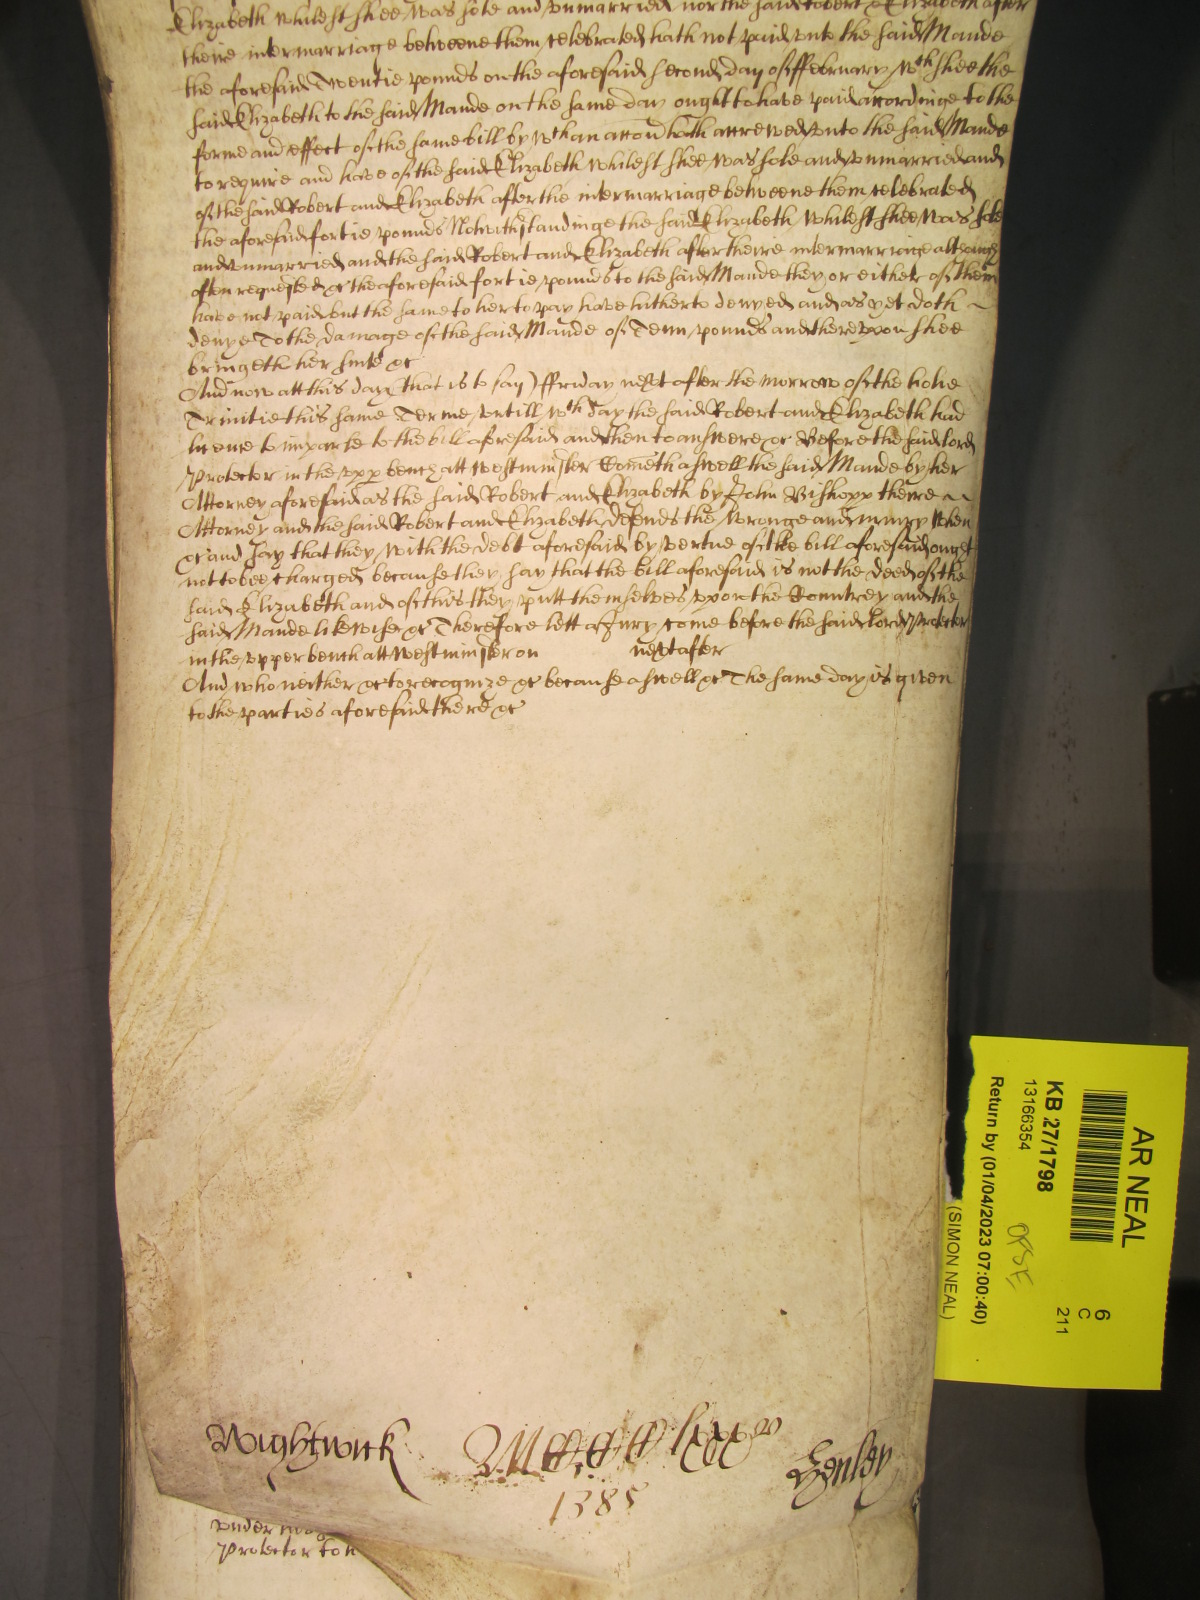 Elizabeth whilest shee was sole and unmarried nor the said Robert & Elizabeth after
theire intermarriage betweene them celebrated hath not paid unto the said Maude
the aforesaid Twentie pounds on the aforesaid second day of ffebruary wch shee the
said Elizabeth to the said Maude on the same day ought to have paid accordinge to the
forme and effect of the same bill by wch an accon hath accrewed unto the said Maude
to require and have of the said Elizabeth whilest shee was sole and unmarried and
of the said Robert and Elizabeth after the intermarriage betweene them celebrated
the aforesaid fortie pounds Notwithstandinge the said Elizabeth whilest shee was sole
and unmarried and the said Robert and Elizabeth after theire intermarriage although
often requested &c the aforesaid fortie pounds to the said Maude they or either of them
have not paid but the same to her to pay have hitherto denyed and as yet doth
denye To the damage of the said Maude of Tenn pounds and thereupon shee
bringeth her suite &c
And now att this day (that is to say) ffriday next after the morrow of the holie
Trinitie this same Terme untill wch day the said Robert and Elizabeth had
licence to imparle to the bill aforesaid and then to answere &c Before the said lord
Protector in the upp bench att Westminster Cometh aswell the said Maude by her
Attorney aforesaid as the said Robert and Elizabeth by John Bishopp theire
Attorney and the said Robert and Elizabeth defends the wronge and injury when
&c and say that they with the debt aforesaid by vertue of the bill aforesaid ought
not to bee charged because they say that the bill aforesaid is not the deed of the
said Elizabeth and of this they putt themselves upon the Countrey and the
said Maude likewise &c Therefore lett a Jury come before the said lord Protector
in the upper bench att Westminster on next after
And who neither &c to recognize &c because aswell &c The same day is given
to the parties aforesaid there &c
Wightwick
Henley
1385
under
Protector to
AR NEAL
KB 27/1798
13166354
Return by (01/04/2023 07:00:40)
(SIMON NEAL)
6
C
211